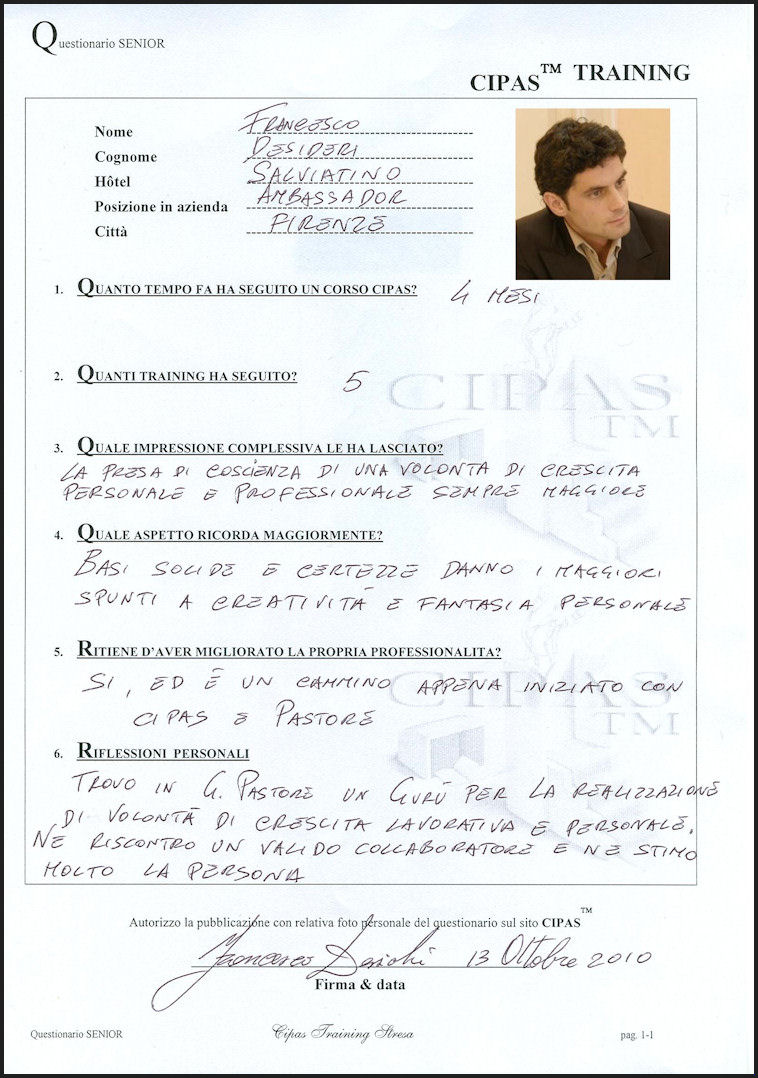 Questionario SENIOR
CIPAS™ TRAINING
Nome FRANCESCO
Cognome DESIDERI
Hôtel SALVIATINO
Posizione in azienda AMBASSADOR
Città FIRENZE
1. QUANTO TEMPO FA HA SEGUITO UN CORSO CIPAS? 4 MESI
2. QUANTI TRAINING HA SEGUITO? 5
CIPAS
TM
3. QUALE IMPRESSIONE COMPLESSIVA LE HA LASCIATO?
LA PRESA DI COSCIENZA DI UNA VOLONTA DI CRESCITA
PERSONALE E PROFESSIONALE SEMPRE MAGGIORE
4. QUALE ASPETTO RICORDA MAGGIORMENTE?
BASI SOLIDE E CERTEZZE DANNO I MAGGIORI
SPUNTI A CREATIVITÀ E FANTASIA PERSONALE
5. RITIENE D'AVER MIGLIORATO LA PROPRIA PROFESSIONALITA?
SI, ED È UN CAMMINO APPENA INIZIATO CON
CIPAS E PASTORE
CIPAS
TM
6. RIFLESSIONI PERSONALI
TROVO IN G. PASTORE UN GURÙ PER LA REALIZZAZIONE
DI VOLONTÀ DI CRESCITA LAVORATIVA E PERSONALE.
NE RISCONTRO UN VALIDO COLLABORATORE E NE STIMO
MOLTO LA PERSONA
Autorizzo la pubblicazione con relativa foto personale del questionario sul sito CIPAS™
Francesco Desideri 13 Ottobre 2010
Firma & data
Questionario SENIOR Cipas Training Stresa pag. 1-1